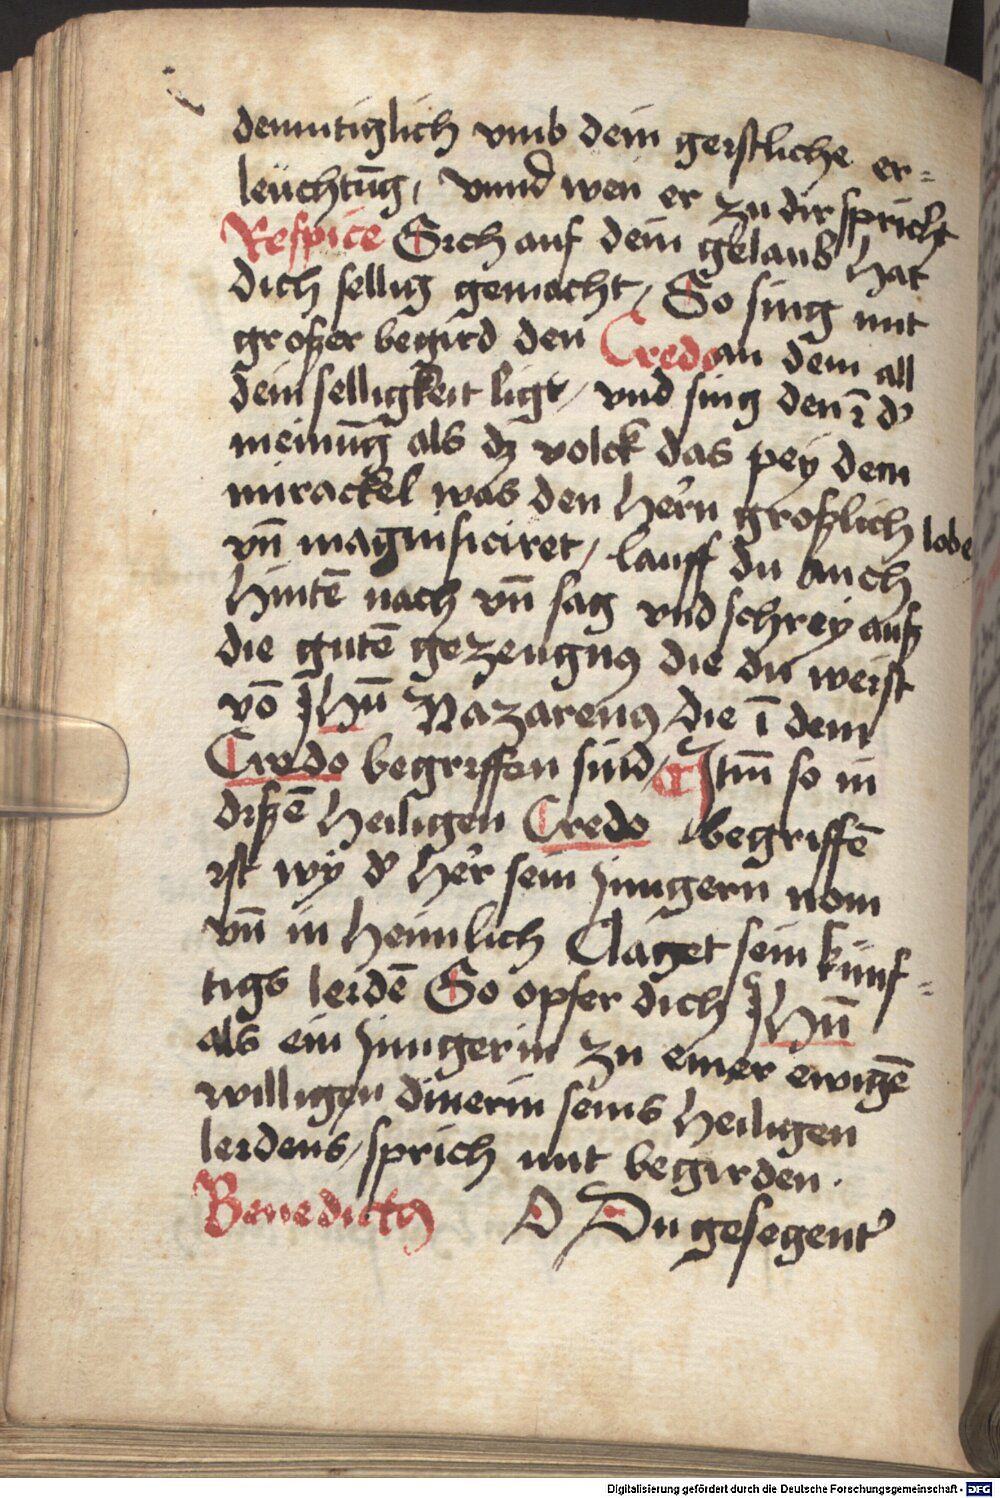 demutiglich vmb dein geistliche er=
leuchtūg, Vnnd wen er zu dir spricht
Respice Sich auf dein gelaub hat
dich sellig gemacht / So sing mit
großer begird den Credo an dem all
dein selligkeit ligt / vnd sing den ī dʼ
meinūg als dz volck das pey dem
mirackel was den herʼn großlich lobe
vn̄ magnificiret / lauff du auch
hintē nach vn̄ sag vnd schrey auß
die gutē gezeugnꝰ die du weist
vō Jhū Nazarenꝰ die ī dem
Credo begriffen sind / Itm̄ so in
dißē heiligen Credo begriffē
ist wy dʼ herʼ sein jungern nom
vn̄ in heimlich Claget sein künf=
tigs leidē So opfer dich Jhū
als ein jungerin zu einer ewigē
willigen dinerin seins heiligen
leidens / sprich mit begirden .
Benedictꝰ O Du gesegentʼ
Digitalisierung gefördert durch die Deutsche Forschungsgemeinschaft - DFG